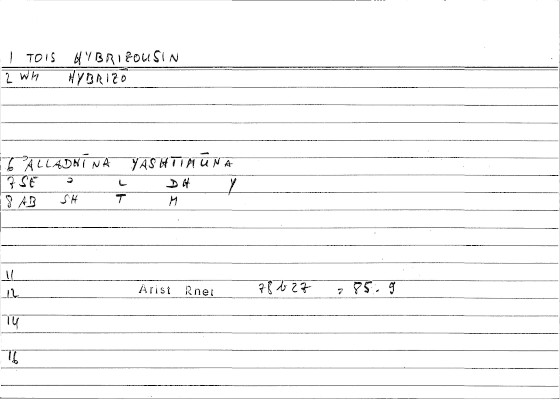 1 TOIS HYBRIZOUSIN
2 WH HYBRIZO
6 ʾALLADHĪNA YASHTIMŪNA
7 SE ʾ L DH Y
8 AB SH T M
11
12 Arist Rhet 78b27 , 85.9
14
16